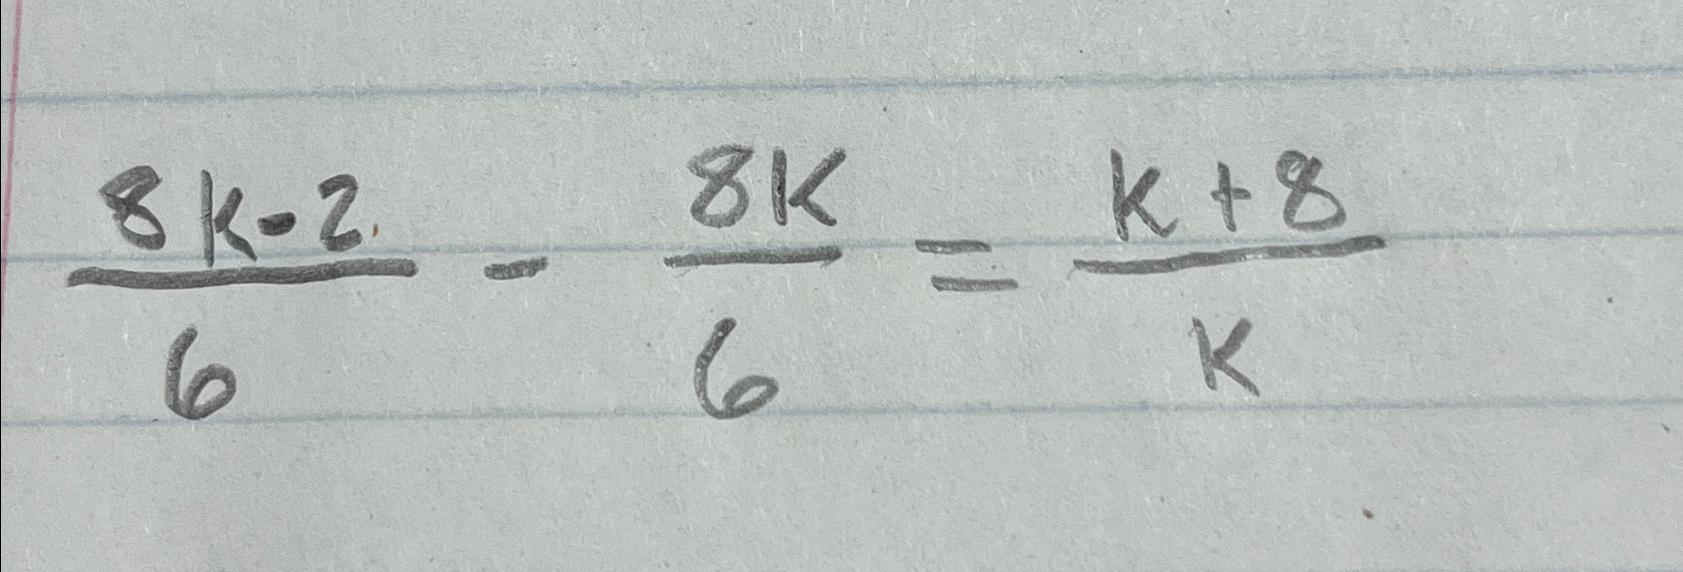 (8k-2)/6 - 8k/6 = (k+8)/k